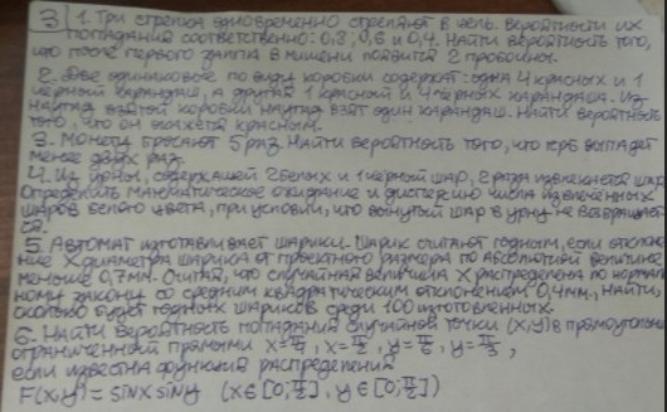 3 1. Три стрелка одновременно стреляют в цель. Вероятности их
попадания соответственно: 0,8; 0,6 и 0,4. Найти вероятность того,
что после первого залпа в мишени появится 2 пробоины.
2. Две одинаковые по виду коробки содержат: одна 4 красных и 1
черный карандаш, а другая 1 красный и 4 черных карандаша. Из
наугад взятой коробки наугад взят один карандаш. Найти вероятность
того, что он окажется красным.
3. Монету бросают 5 раз. Найти вероятность того, что герб выпадет
менее двух раз.
4. Из урны, содержащей 2 белых и 1 черный шар, 2 раза извлекается шар.
Определить математическое ожидание и дисперсию числа извлечённых
шаров белого цвета, при условии, что вынутый шар в урну не возвращает
ся.
5. Автомат изготавливает шарики. Шарик считают годным, если отклоне
ние X диаметра шарика от проектного размера по абсолютной величине
меньше 0,7мм. Считая, что случайная величина X распределена по нормаль
ному закону со средним квадратическим отклонением 0,4мм., найти,
сколько будет годных шариков среди 100 изготовленных.
6. Найти вероятность попадания случайной точки (x,y) в прямоугольник
ограниченный прямыми x=π/4, x=π/2, y=π/6, y=π/3,
если известна функция распределения
F(x,y)= sinx siny (x∈[0;π/2], y∈[0;π/2])